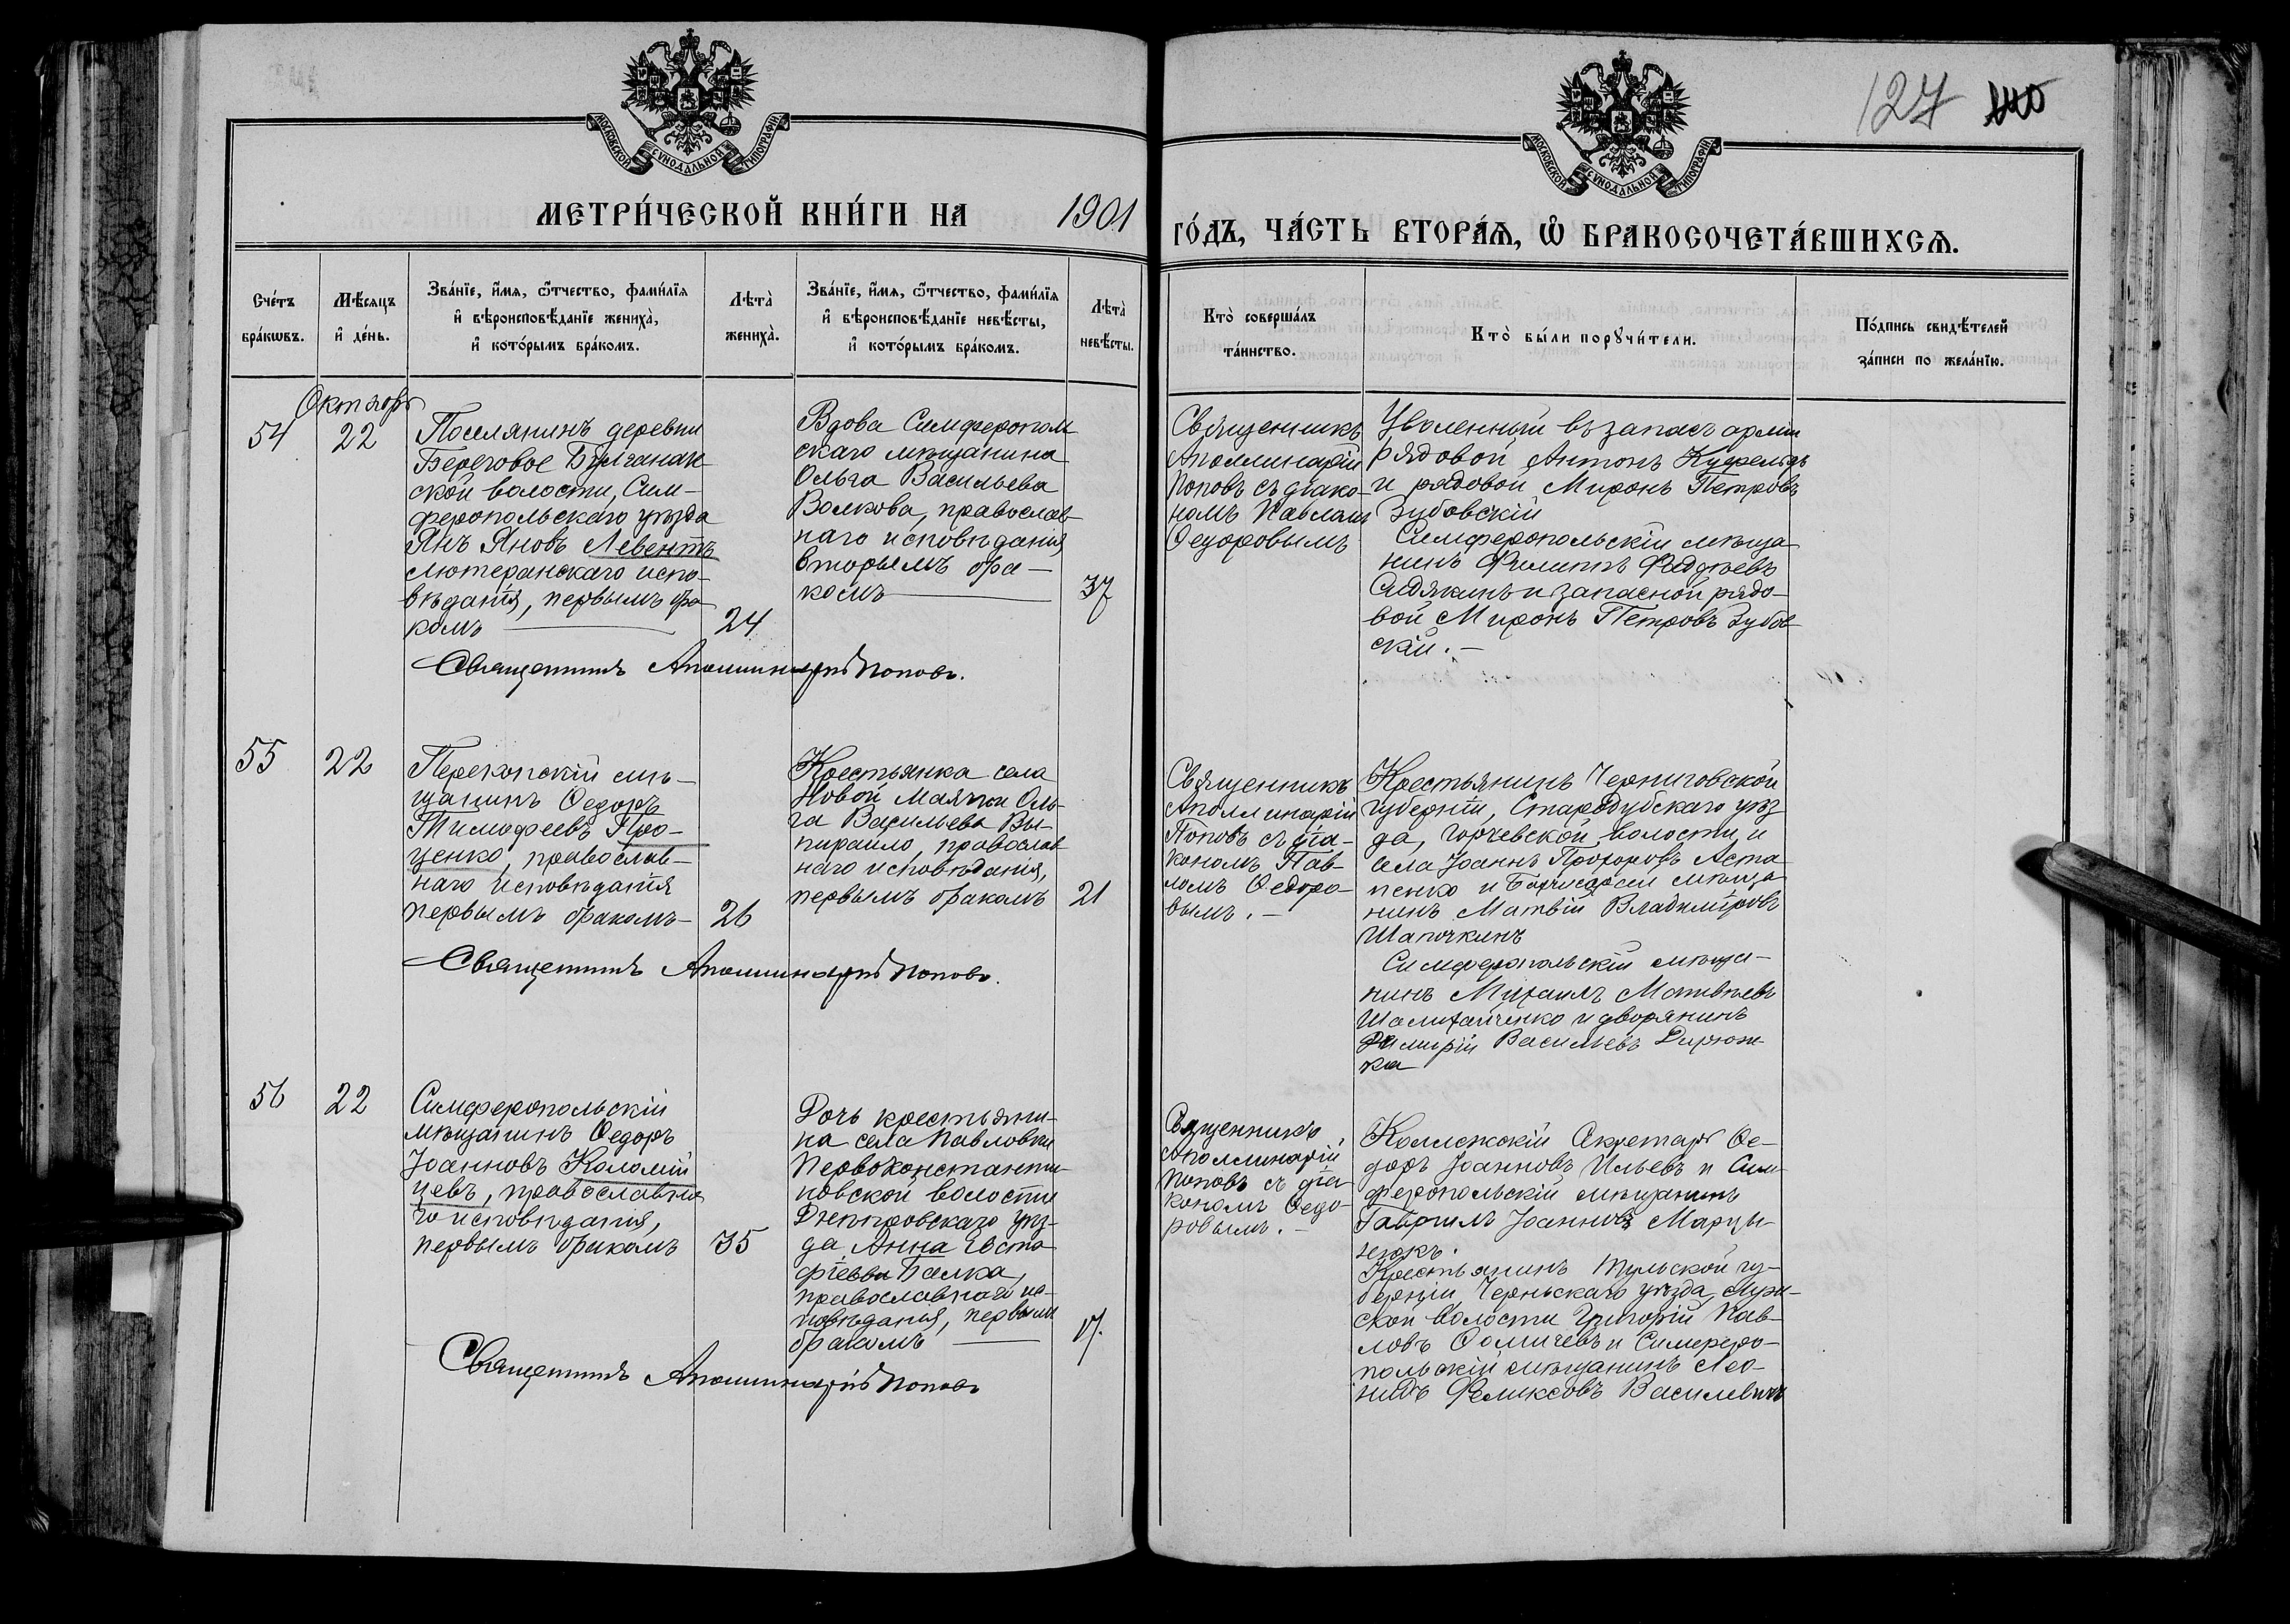 127
МОСКОВСКОЙ СѴНОДАЛЬНОЙ ТИПОГРАФІИ
МОСКОВСКОЙ СѴНОДАЛЬНОЙ ТИПОГРАФІИ
МЕТРИ́ЧЕСКОЙ КНИ́ГИ НА 1901
ГО́ДЪ, ЧА́СТЬ ВТОРА́Ѧ, Ѡ҆ БРАКОСОЧЕТА́ВШИХСѦ.
Сче́тъ
бра́кѡвъ.
Мѣ́сяцъ
и҆ де́нь.
Зва́нїе, и҆́мя, ѻ҆́тчество, фами́лїя
и҆ вѣроисповѣ́данїе жениха̀,
и҆ кото́рымъ бра́комъ.
Лѣта̀
жениха̀.
Зва́нїе, и҆́мя, ѻ҆́тчество, фами́лїя
и҆ вѣроисповѣ́данїе невѣ́сты,
и҆ кото́рымъ бра́комъ.
Лѣта̀
невѣ́сты.
Кто̀ соверша́лъ
та́инство.
Кто̀ бы́ли порꙋчи́тели.
По́дпись свидѣ́телей
за́писи по жела́нїю.
Октябрь
54
22
Поселянинъ деревни
Береговое Булганак-
ской волости, Сим-
феропольскаго уѣзда
Янъ Яновъ Левентъ
лютеранскаго испо-
вѣданія, первымъ бра-
комъ —
24
Вдова Симферополь-
скаго мѣщанина
Ольга Васильева
Волкова, православ-
наго исповѣданія
вторымъ бра-
комъ —
37
Священникъ
Аполлинарій
Поповъ съ діако-
номъ Павломъ
Ѳедоровымъ
Уволенный въ запасъ арміи
рядовой Антонъ Куфельдъ
и рядовой Миронъ Петровъ
Зубовскій
Симферопольскій мѣща-
нинъ Филиппъ Фаддѣевъ
Сидякинъ и запасной рядо-
вой Миронъ Петровъ Зубов-
скій. —
Священникъ Аполлинарій Поповъ.
55
22
Перекопскій мѣ-
щанинъ Ѳедоръ
Тимофеевъ Про-
ценко, православ-
наго исповѣданія
первымъ бракомъ —
26
Крестьянка села
Новой Маячки Оль-
га Васильева Вы-
пирайло, православ-
наго исповѣданія,
первымъ бракомъ
21
Священникъ
Аполлинарій
Поповъ съ діа-
кономъ Пав-
ломъ Ѳедоро-
вымъ. —
Крестьянинъ Черниговской
губерніи, Стародубскаго уѣз-
да, волости и
села Іоаннъ Прохоровъ Аста-
пенко и мѣща-
нинъ Матвій Владиміровъ
Шапочкинъ
Симферопольскій мѣща-
нинъ Михаилъ Матвѣевъ
и дворянинъ
Димитрій Васильевъ
ка
Священникъ Аполлинарій Поповъ.
56
22
Симферопольскій
мѣщанинъ Ѳедоръ
Іоанновъ Коломій-
цевъ, православна-
го исповѣданія,
первымъ бракомъ
35
Дочь крестьяни-
на села Павловки
Первоконстанти-
новской волости
Днепровскаго уѣз-
да, Анна Евста-
фіева Балка,
православнаго ис-
повѣданія, первымъ
бракомъ —
17.
Священникъ
Аполлинарій
Поповъ съ діа-
кономъ Ѳедо-
ровымъ. —
Коллежскій Секретарь Ѳе-
доръ Іоанновъ Ильевъ и Сим-
феропольскій мѣщанинъ
Гавриилъ Іоанновъ Марцы-
нюкъ.
Крестьянинъ Тульской гу-
берніи, Черньскаго уѣзда,
ской волости Григорій Пав-
ловъ Ѳомичевъ и Симферо-
польскій мѣщанинъ Лео-
нидъ Феликсовъ Василевичъ
Священникъ Аполлинарій Поповъ